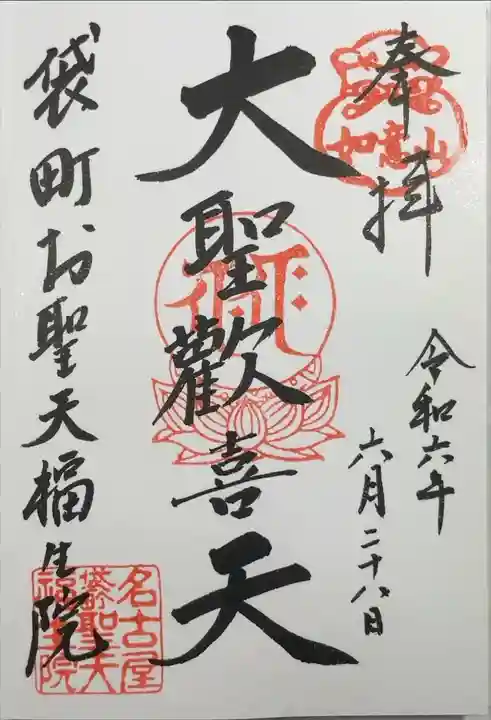 奉拝
如意山
令和六年
六月二十八日
大聖歡喜天
袋町お聖天福生院
名古屋
袋聖天
福生院